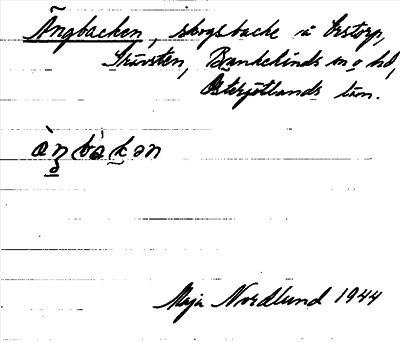 Ängbacken, skogsbacke i Erstorp,
Skärsten, Bankekinds sn o hd,
Östergötlands län.
àŋbàkən
Maja Nordlund 1944